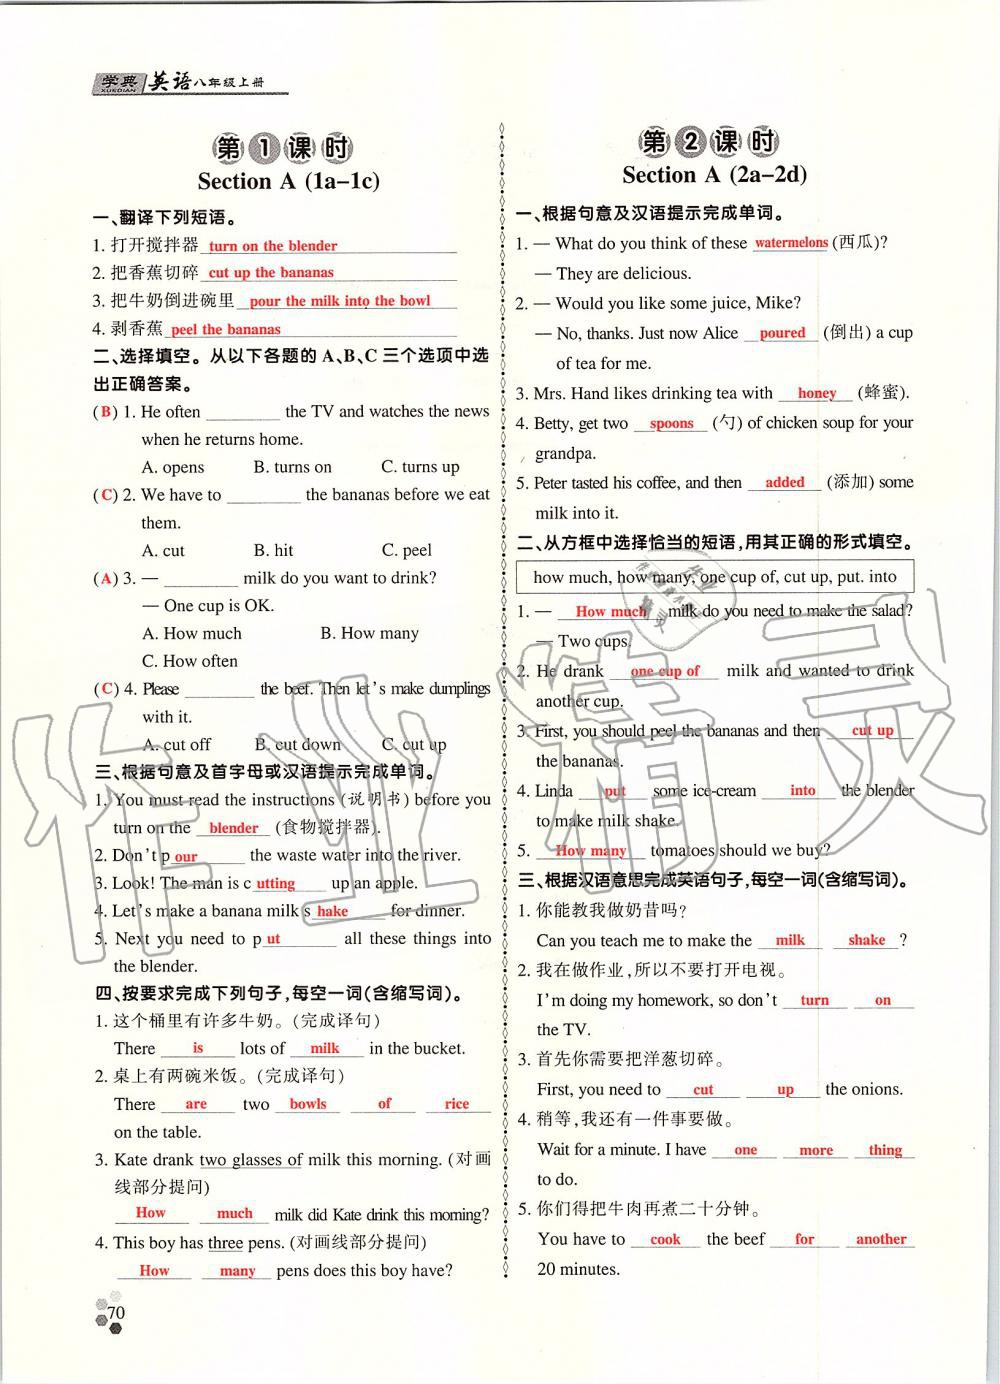 学典 XUEDIAN 英语八年级上册
第1课时
Section A (1a-1c)
一、翻译下列短语。
1. 打开搅拌器 turn on the blender
2. 把香蕉切碎 cut up the bananas
3. 把牛奶倒进碗里 pour the milk into the bowl
4. 剥香蕉 peel the bananas
二、选择填空。从以下各题的A、B、C三个选项中选
出正确答案。
(B) 1. He often ________ the TV and watches the news
when he returns home.
A. opens B. turns on C. turns up
(C) 2. We have to ________ the bananas before we eat
them.
A. cut B. hit C. peel
(A) 3. — ________ milk do you want to drink?
— One cup is OK.
A. How much B. How many
C. How often
(C) 4. Please ________ the beef. Then let's make dumplings
with it.
A. cut off B. cut down C. cut up
三、根据句意及首字母或汉语提示完成单词。
1. You must read the instructions (说明书) before you
turn on the blender (食物搅拌器).
2. Don't pour the waste water into the river.
3. Look! The man is cutting up an apple.
4. Let's make a banana milk shake for dinner.
5. Next you need to put all these things into
the blender.
四、按要求完成下列句子,每空一词(含缩写词)。
1. 这个桶里有许多牛奶。(完成译句)
There is lots of milk in the bucket.
2. 桌上有两碗米饭。(完成译句)
There are two bowls of rice
on the table.
3. Kate drank two glasses of milk this morning. (对画
线部分提问)
How much milk did Kate drink this morning?
4. This boy has three pens. (对画线部分提问)
How many pens does this boy have?
70
第2课时
Section A (2a-2d)
一、根据句意及汉语提示完成单词。
1. — What do you think of these watermelons (西瓜)?
— They are delicious.
2. — Would you like some juice, Mike?
— No, thanks. Just now Alice poured (倒出) a cup
of tea for me.
3. Mrs. Hand likes drinking tea with honey (蜂蜜).
4. Betty, get two spoons (勺) of chicken soup for your
grandpa.
5. Peter tasted his coffee, and then added (添加) some
milk into it.
二、从方框中选择恰当的短语,用其正确的形式填空。
how much, how many, one cup of, cut up, put. into
1. — How much milk do you need to make the salad?
— Two cups.
2. He drank one cup of milk and wanted to drink
another cup.
3. First, you should peel the bananas and then cut up
the bananas.
4. Linda put some ice-cream into the blender
to make milk shake.
5. How many tomatoes should we buy?
三、根据汉语意思完成英语句子,每空一词(含缩写词)。
1. 你能教我做奶昔吗?
Can you teach me to make the milk shake ?
2. 我在做作业,所以不要打开电视。
I'm doing my homework, so don't turn on
the TV.
3. 首先你需要把洋葱切碎。
First, you need to cut up the onions.
4. 稍等,我还有一件事要做。
Wait for a minute. I have one more thing
to do.
5. 你们得把牛肉再煮二十分钟。
You have to cook the beef for another
20 minutes.
作业精灵